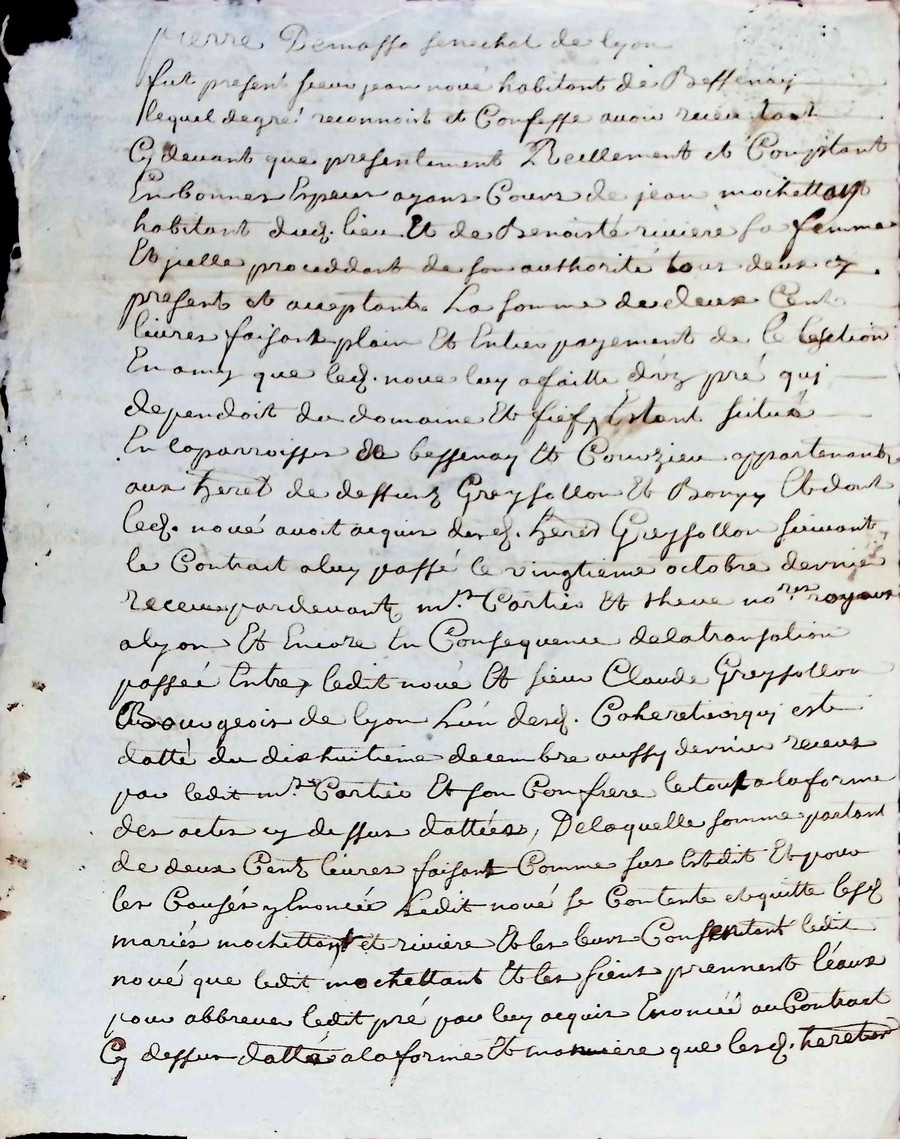 pierre Demasso senechal de lyon
fut present sieur jean noué habitant de Bessenay
lequel degré reconnoist et Confesse avoir receu tant
Cy devant que presentement Reellement et Comptant
En bonnes Especes ayans Cours de jean mochettant
habitant dud. lieu Et de Benoiste riviere sa femme
Et jcelle proceddant de son authorité tous deux cy
present et acceptants La somme de deux Cent
livres faisant plain Et Entier payement de le
En amy que led. noué luy a faitte d'vz pré qui
dependoit du domaine Et fief Estant situé
En la parroisse de bessenay Et Courzieu appartenants
aux heret de deffunz Greysollon Et Et dont
led. noué avoit acquis desd. heres Greysollon suivant
le Contract a luy passé le vingtieme octobre dernier
receu pardevant mrs Cartier Et no.res royaux
a lyon Et Encore En Consequence de la transation
passée Entre ledit noué Et sieur Claude Greysollon
Bourgeois de lyon L'un desd. Coheretiers qui est
datté du dixhuitieme decembre aussy dernier receus
par ledit mre Cartier Et son Confrere le tout a la forme
des actes cy dessus dattées, De laquelle somme partant
de deux Cent livres faisant Comme sus Est dit Et pour
les Causés y Enoncée Ledit noué se Contente et quitte lesd
mariés mochettant et riviere Et les leurs Consentant ledit
noué que ledit mochettant Et les siens prennent léaux
pour abbreuer ledit pré par luy acquis Enoncée au Contract
Cy dessus datté a la forme Et maniere que lesd. heretier